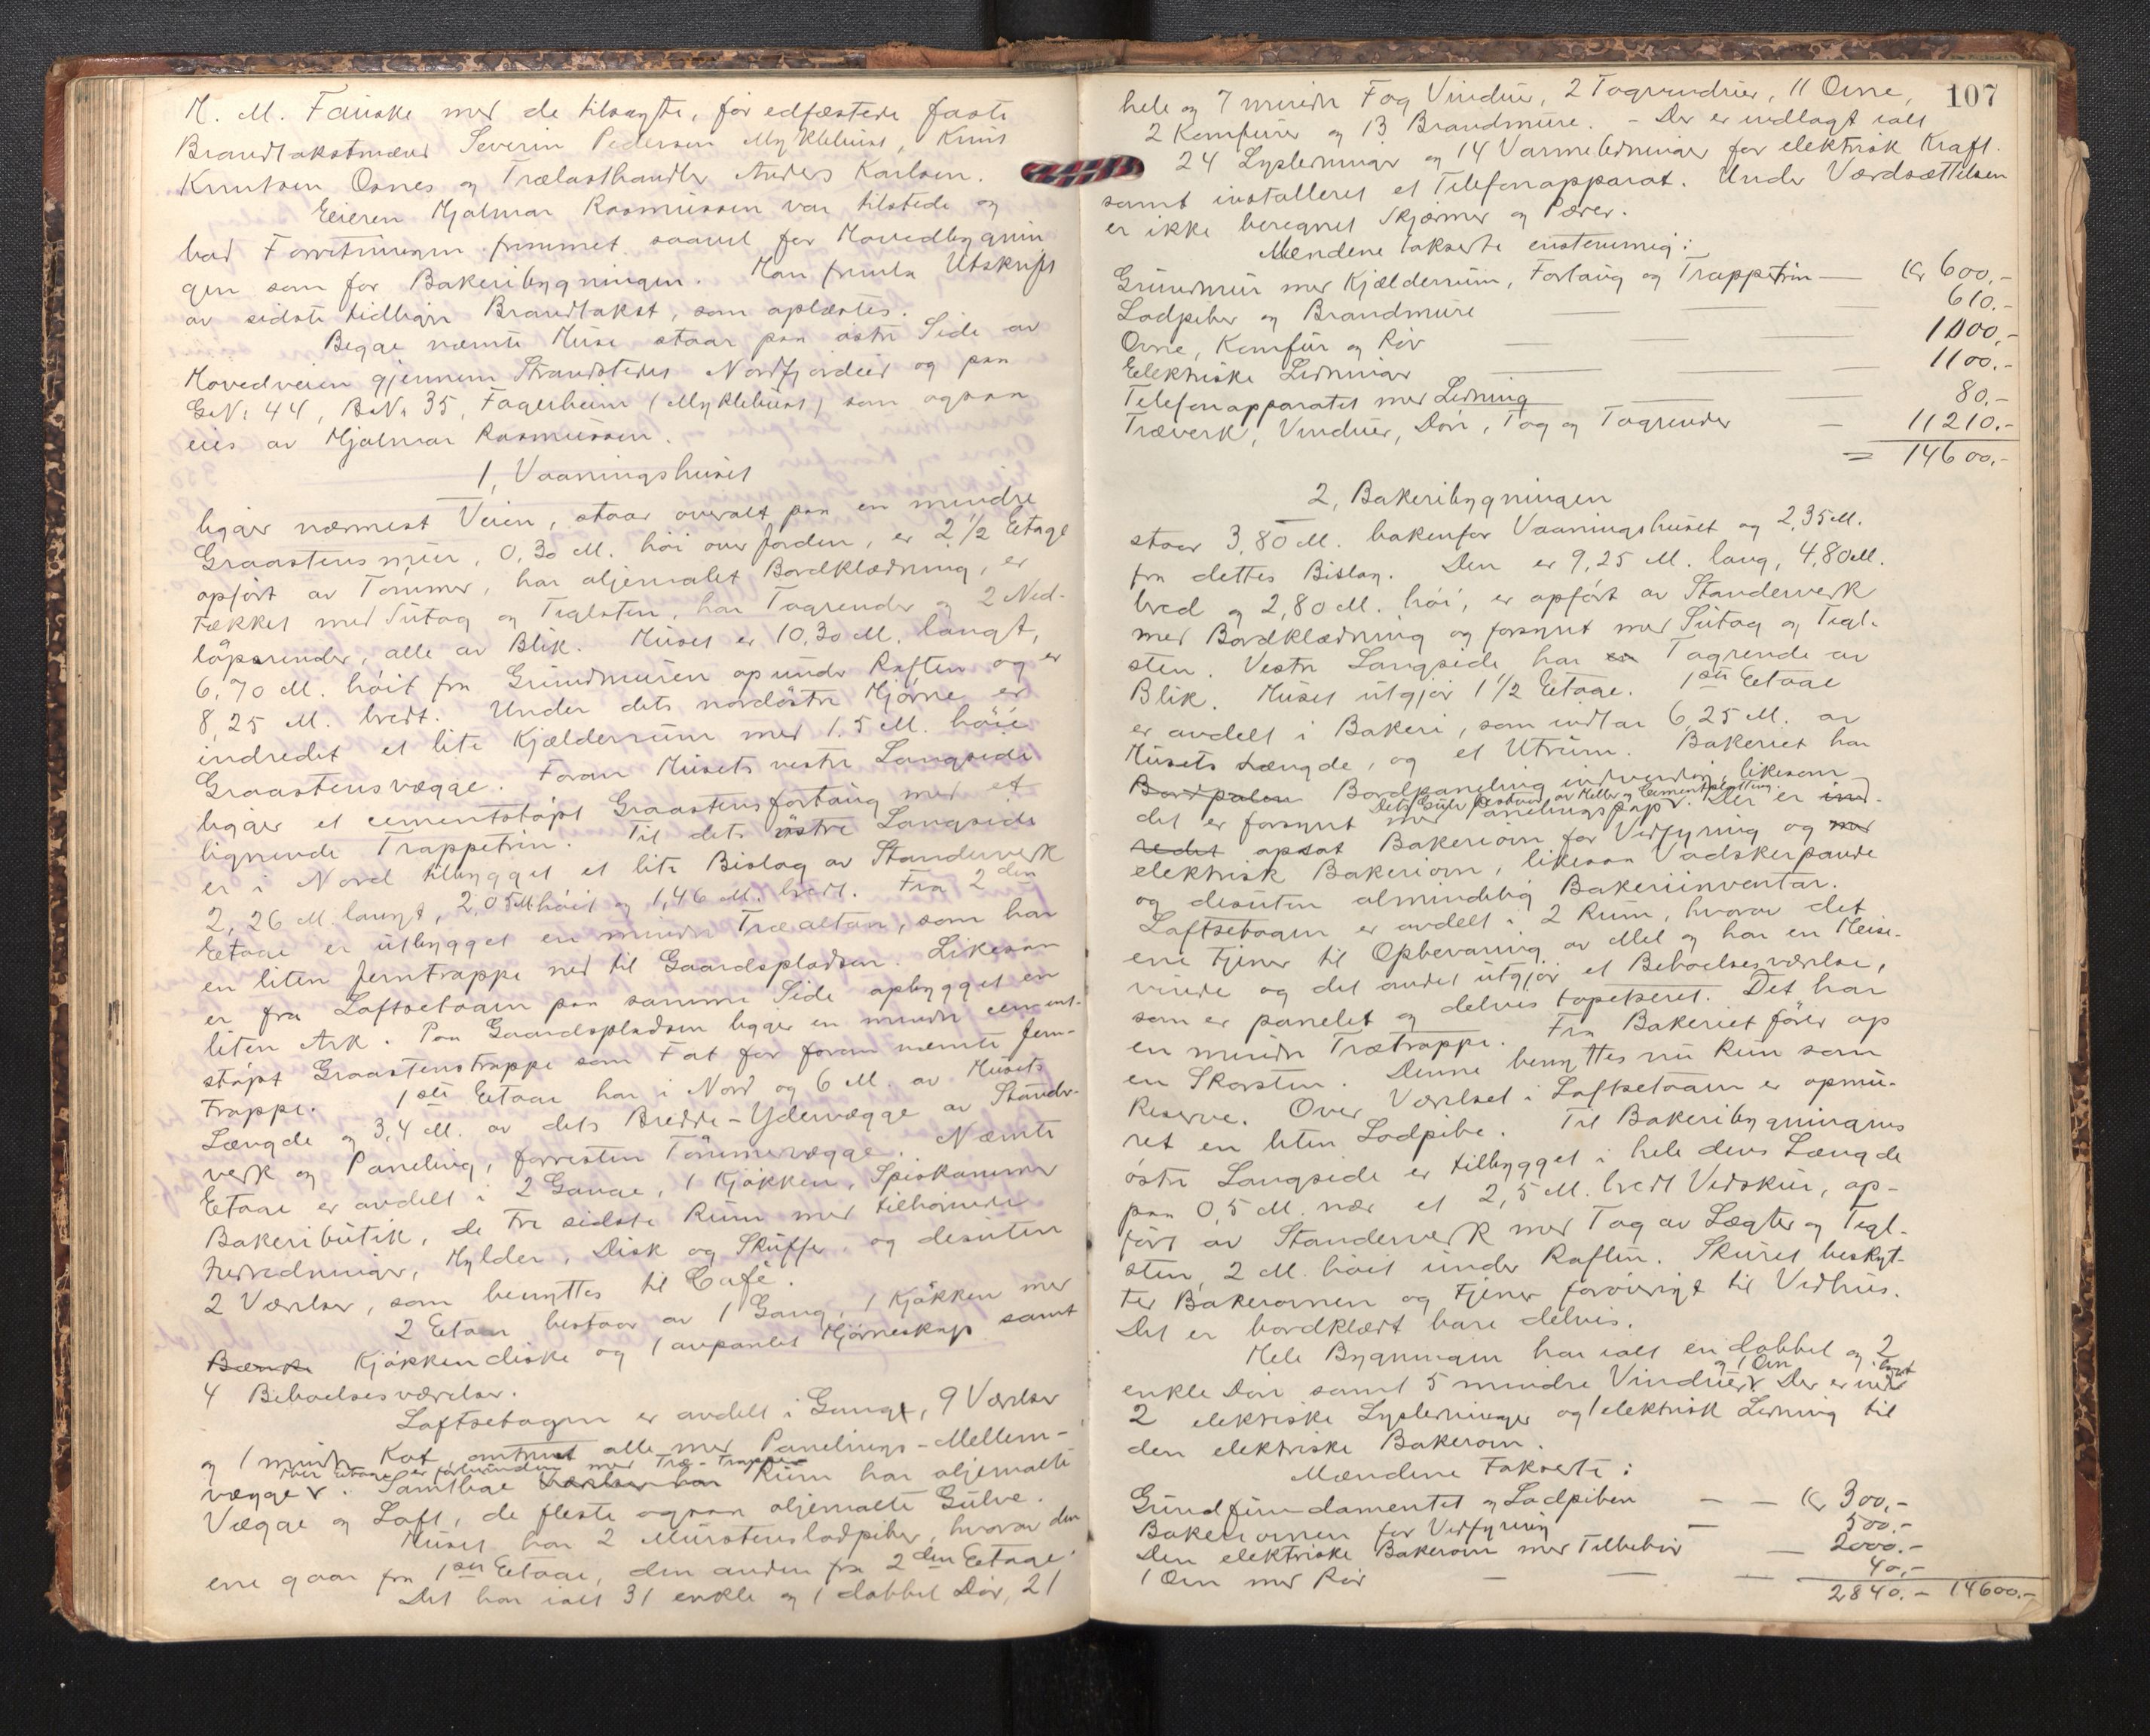 M. M. Fauske med de tilsagte, før edfæstede faste
Brandtakstmænd Severin Pedersen Myklebust, Knut
Knutsen Osnes og Trælasthandler Anders Karlsen.
Eieren Hjalmar Rasmussen var tilstede og
bad Forretningen fremmet saavel for Hovedbygnin
gen som for Bakeribygningen. Han fremla Utskrift
av sidste tidligere Brandtakst, som oplæstes.
Begge nævnte Huse staar paa østre Side av
Hovedveien gjennem Strandstedet Nordfjordeid og paa
G.No 44, B.No 35, Fagerheim (Myklebust) som ogsaa
eies av Hjalmar Rasmussen.
1, Vaaningshuset
ligger nærmest Veien, staar overalt paa en mindre
Graastensmur, 0,30 M. høi over Jorden, er 2 1/2 Etage
opført av Tømmer, har oljemalet Bordklædning, er
tækket med Sutag og Teglsten, har Tagrender og 2 Ned-
løpsrender, alle av Blik. Huset er 10,30 M. langt,
6,70 M. høit fra Grundmuren op under Raften og er
8,25 M. bredt. Under dets nordøstre Hjørne er
indredet et lite Kjælderrum med 1.5 M. høie
Graastensvægge. Foran Husets vestre Langside
ligger et cementstøpt Graastensfortaug med et
lignende Trappetrin. Til dets østre Langside
er i Nord tilbygget et lite Bislag av Standerverk
2,26 M. langt, 2,05 M høit og 1,46 M. bredt. Fra 2den
Etage er utbygget en mindre Træaltan, som har
en liten Jerntrappe ned til Gaardspladsen. Likesaa
er fra Loftsetagen paa samme Side opbygget en
liten Ark. Paa Gaardspladsen ligger en mindre cement-
støpt Graastenstrappe som Fot for foran nævnte Jern-
trappe. 1ste Etage har i Nord og 6 M. av Husets
Længde og 3,4 M. av dets Bredde - Ydervægge av Stander-
verk og Paneling, forresten Tømmervægge. Nævnte
Etage er avdelt i 2 Gange, 1 Kjøkken, Spiskammer
Bakeributik, de tre sidste Rum med tilhørende
Indredninger, Hylder, Disk og Skuffer, og desuten
2 Værelser, som benyttes til Café.
2 Etage bestaar av 1 Gang, 1 Kjøkken med
Bænke Kjøkkendiske og 1 avpanlet Hjørneskap samt
4 Beboelsesværelser.
Loftsetagen er avdelt i Gang, 9 Værelser
og 1 mindre Kot omtrent alle med Panelings-Mellem-
Hver Etage er forbunden med Træ-Trapper
vægger. Samtlige Værelser har Rum har oljemalte
Vægge og Loft, de fleste ogsaa oljemalte Gulve.
Huset har 2 Murstensladpiber, hvorav den
ene gaar fra 1ste Etage, den anden fra 2den Etage.
Det har ialt 31 enkle og 1 dobbel Dør, 21
107
hele og 7 mindre Fag Vinduer, 2 Tagvinduer, 11 Ovne,
2 Komfurer og 13 Brandmure. - Der er indlagt ialt
24 Lysledninger og 14 Varmeledninger for elektrisk Kraft.
samt installeret et Telefonapparat. Under Værdsættelsen
er ikke beregnet Skjærmer og Pærer.
Mændene takserte enstemmig:
Grundmur med Kjælderrum, Fortaug og Trappetrin — Kr 600,-
Ladpiber og Brandmure — 610.-
Ovne, Komfur og Rør — 1000,-
Elektriske Ledninger — 1100.-
Telefonapparatet med Ledning — 80.-
Træverk, Vinduer, Døre, Tag og Tagrender — 11210.-
= 14600,-
2, Bakeribygningen
staar 3,80 M. bakenfor Vaaningshuset og 2,35 M.
fra dettes Bislag. Den er 9,25 M. lang, 4,80 M.
bred og 2,80 M. høi, er opført av Standerverk
med Bordklædning og forsynt med Sutag og Tegl-
sten. Vestre Langside har en Tagrende av
Blik. Huset utgjør 1 1/2 Etage. 1ste Etage
er avdelt i Bakeri, som indtar 6,25 M. av
Husets Længde, og et Utrum. Bakeriet har
Bordpalen Bordpaneling indvendig, likesom
Dets Gulv bestaar av Heller og Cementplatting.
det er forsynt med Panelingspap. Der er ind-
redet opsat Bakeriovn for Vedfyring og med
elektrisk Bakeriovn, likesaa Vadskerpande
og desuten almindelig Bakeriinventar.
Loftsetagen er avdelt i 2 Rum, hvorav det
ene tjener til Opbevaring av Mel og har en Heise-
vinde og det andet utgjør et Beboelsesværelse,
som er panelet og delvis tapetseret. Det har
en mindre Trætrappe. Fra Bakeriet fører op
en Skorsten. Denne benyttes nu kun som
Reserve. Over Værelset i Loftsetagen er opmu-
ret en liten Ladpibe. Til Bakeribygningens
østre Langside er tilbygget i hele dens Længde
paa 0,5 M. nær et 2,5 M. bredt Vedskur, op-
ført av Standerverk med Tag av Lægter og Tegl-
sten, 2 M. høit under Raften. Skuret beskyt-
ter Bakerovnen og tjener forøvrigt til Vedhus.
Det er bordklædt bare delvis.
Hele Bygningen har ialt en dobbel og 2
og 1 Ovn
enkle Døre samt 5 mindre Vinduer. Der er indlagt
2 elektriske Lysledninger og 1 elektrisk Ledning til
den elektriske Bakerovn.
Mændene takserte:
Grundfundamentet og Ladpiben — — Kr 300,-
Bakerovnen for Vedfyring — 500.-
Den elektriske Bakerovn med Tilbehør — 2000.-
1 Ovn med Rør — — — 40,-
2840.- 14600.-